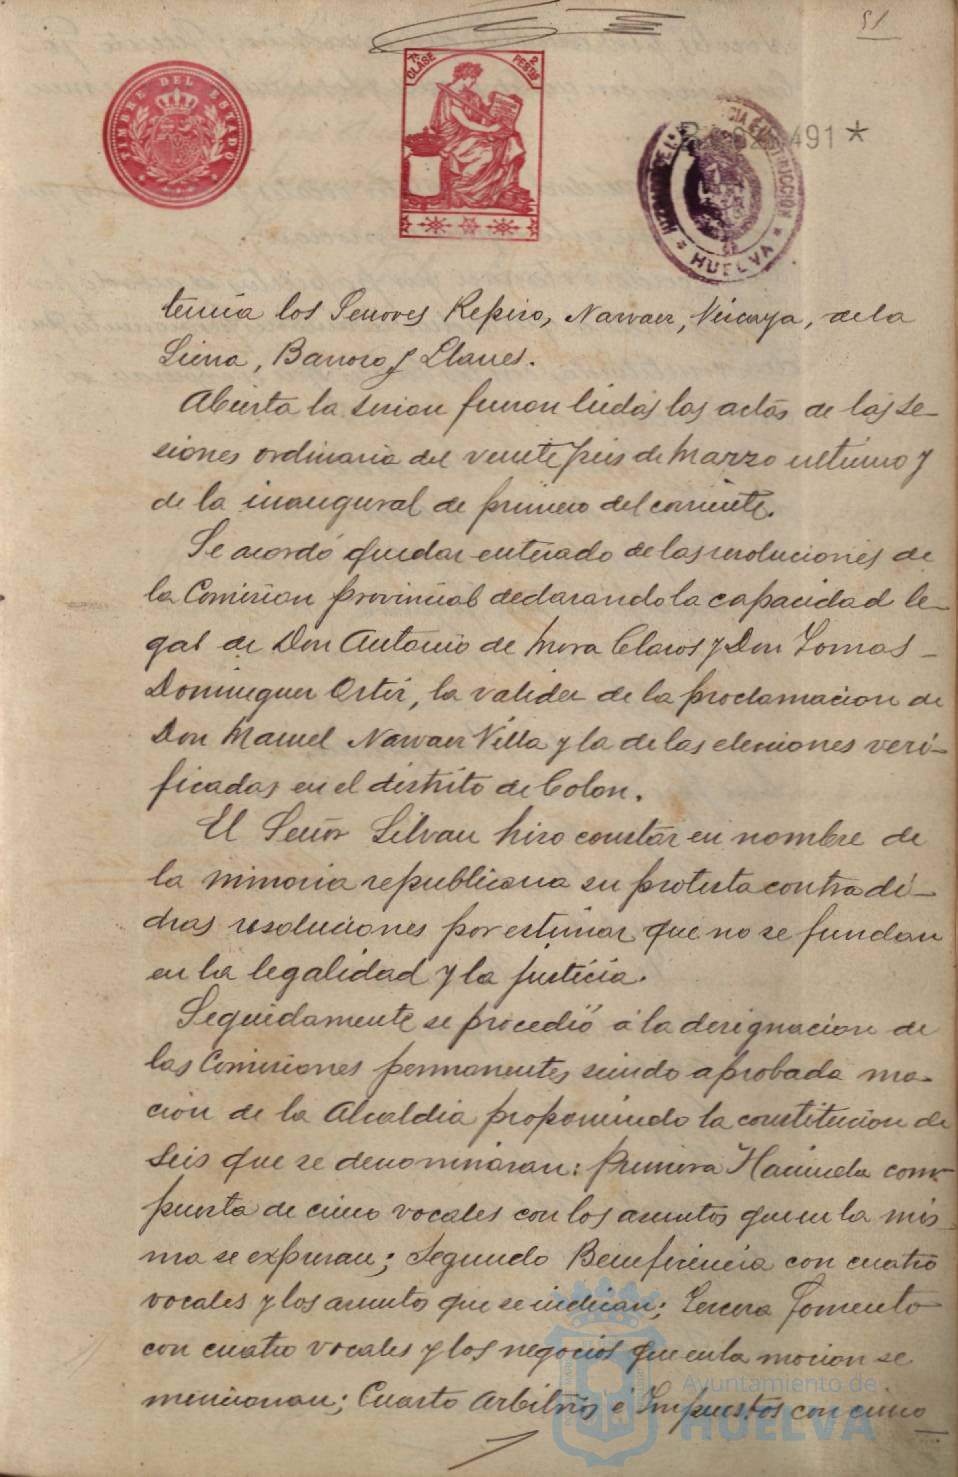 51
TIMBRE DEL ESTADO
7ª CLASE
2 PESETAS
491 *
HUELVA
tencia los Señores Repiso, Narvaez, Vizcaya, de la
Sierra, Barroso y Llanes.
Abierta la sesion fueron leidas las actas de las se-
siones ordinaria del veinte seis de Marzo ultimo y
de la inaugural de primero del corriente.
Se acordó quedar enterado de las resoluciones de
la Comision provincial declarando la capacidad le-
gal de Don Antonio de Mora Claros y Don Tomas
Dominguez Ortiz, la validez de la proclamacion de
Don Manuel Narvaez Villa y la de las elecciones veri-
ficadas en el distrito de Colon.
El Señor Silvan hizo constar en nombre de
la minoria republicana su protesta contra di-
chas resoluciones por estimar que no se fundan
en la legalidad y la justicia.
Seguidamente se procedió á la designacion de
las Comisiones permanentes siendo aprobada mo-
cion de la Alcaldia proponiendo la constitucion de
seis que se denominaran: primera Hacienda com-
puesta de cinco vocales con los asuntos que en la mis-
ma se expresan; segundo Beneficencia con cuatro
vocales y los asuntos que se indican; tercera Fomento
con cuatro vocales y los negocios que en la mocion se
mencionan; Cuarto Arbitrios é Impuestos con cinco
Ayuntamiento de
HUELVA